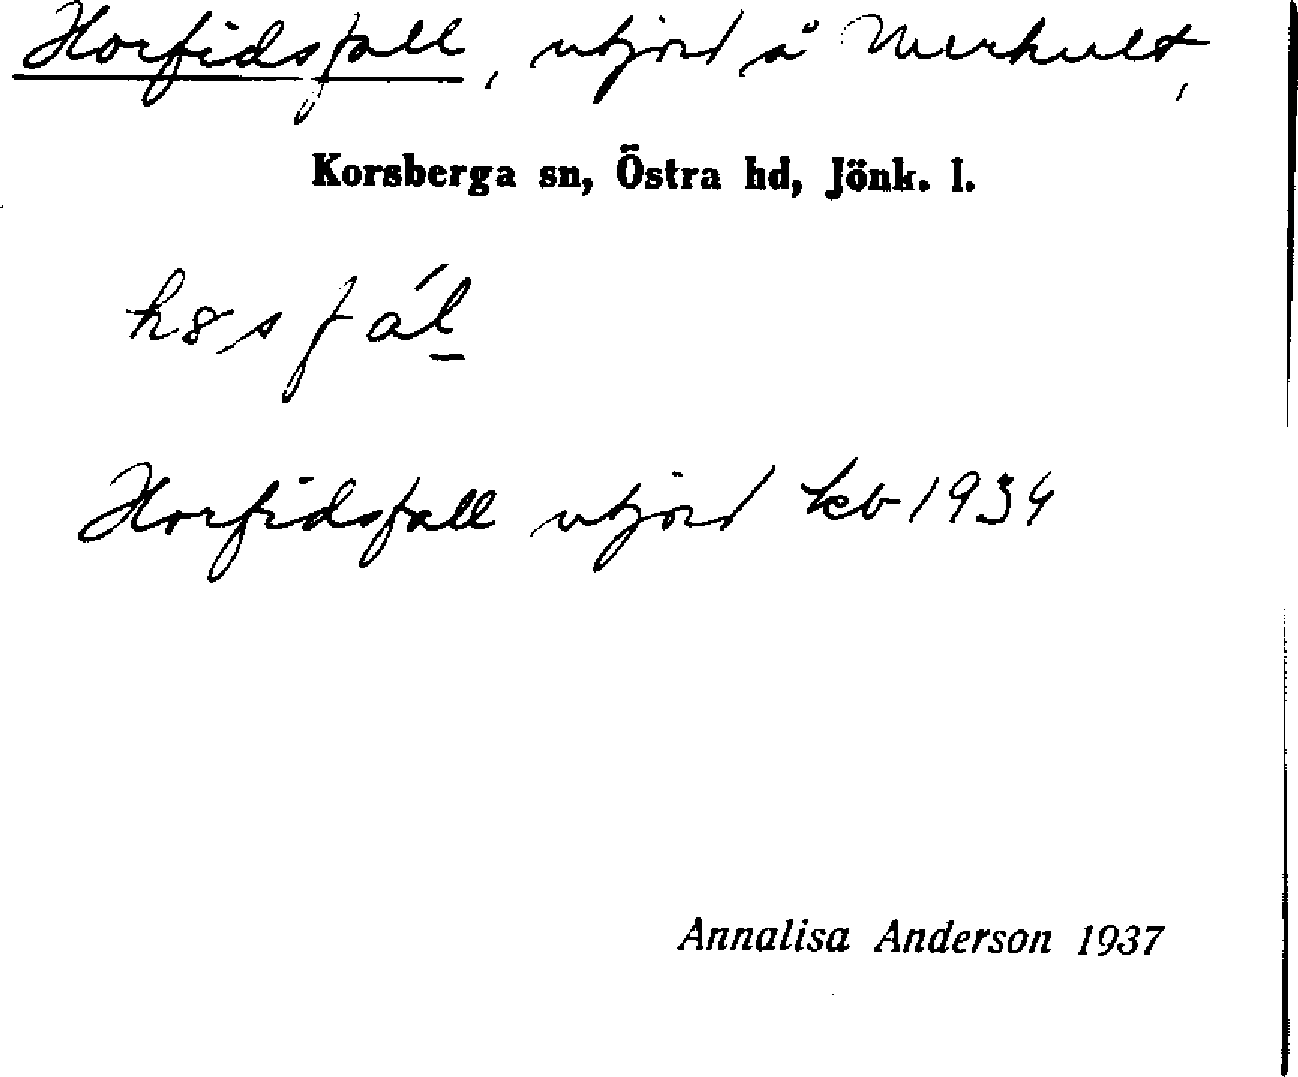 Horfidsfall, utjord å Merhult,
Korsberga sn, Östra hd, Jönk. l.
Horfidsfall utjord kb 1934
Annalisa Anderson 1937